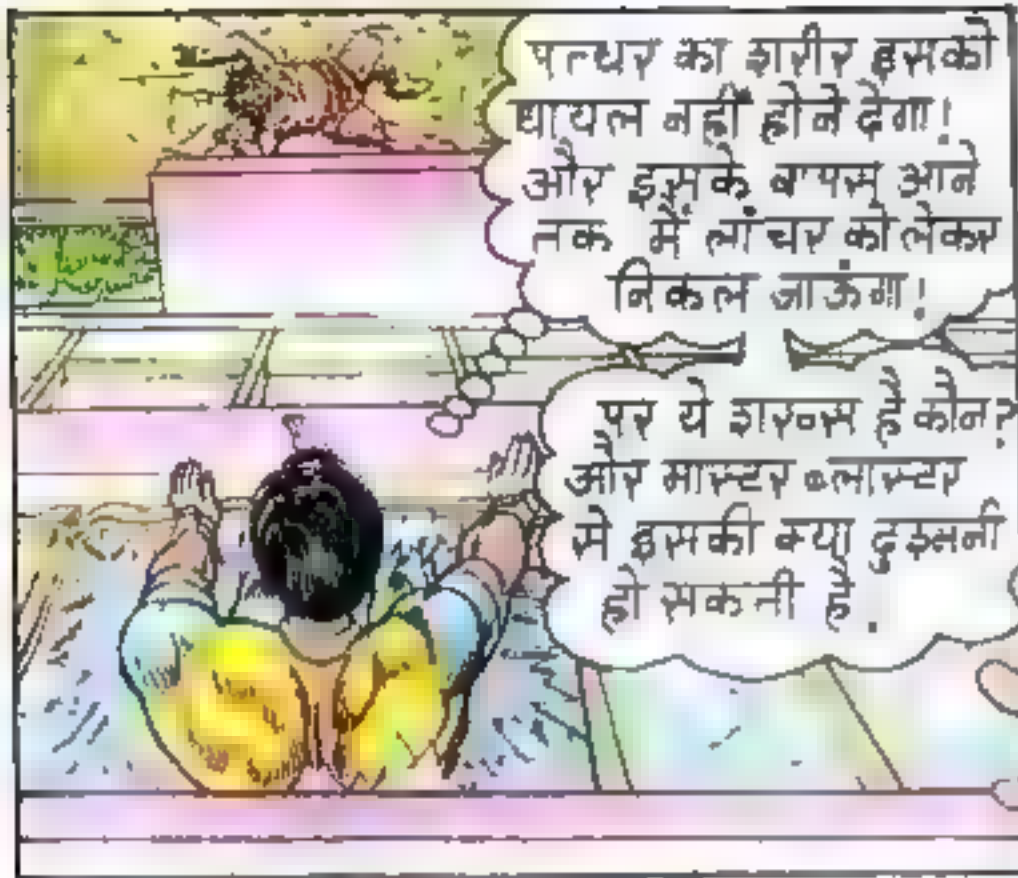 पत्थर का शरीर इसको
घायल नहीं होने देगा!
और इसके वापस आने
तक मैं लांचर को लेकर
निकल जाऊंगा!
पर ये शख्स है कौन?
और मास्टर ब्लास्टर
से इसकी क्या दुश्मनी
हो सकती है.